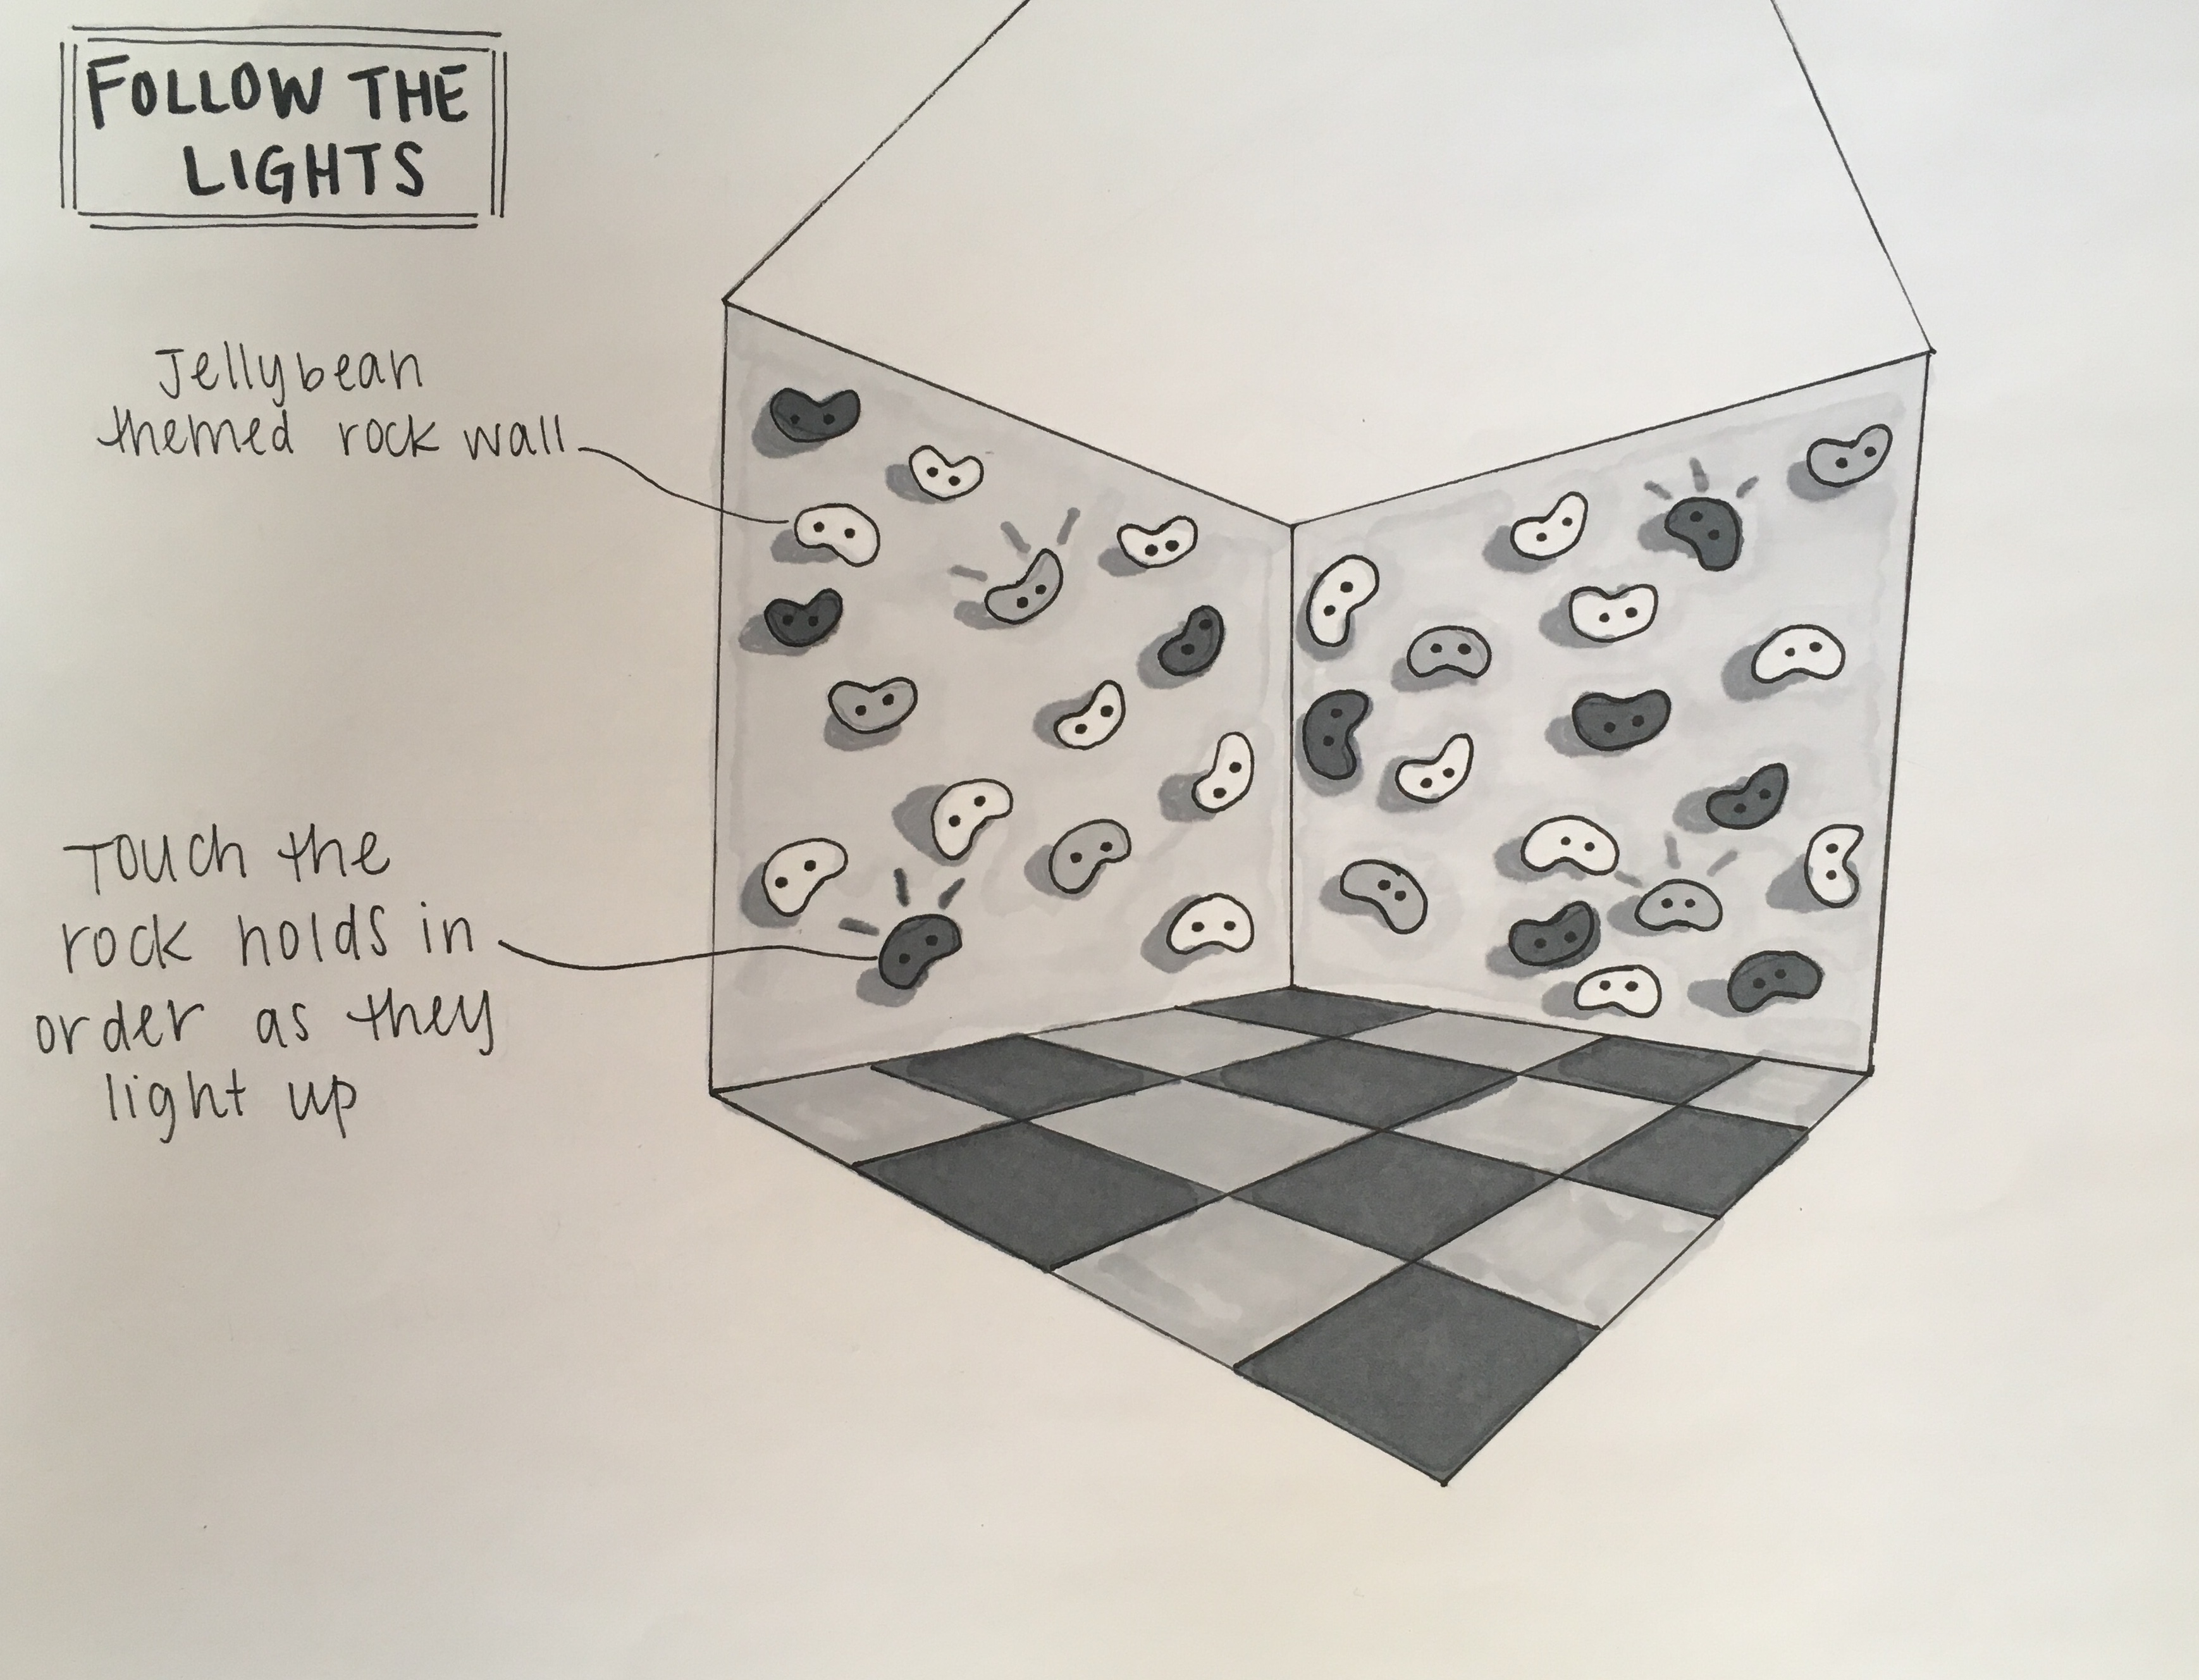 FOLLOW THE
LIGHTS
Jellybean
themed rock wall
Touch the
rock holds in
order as they
light up